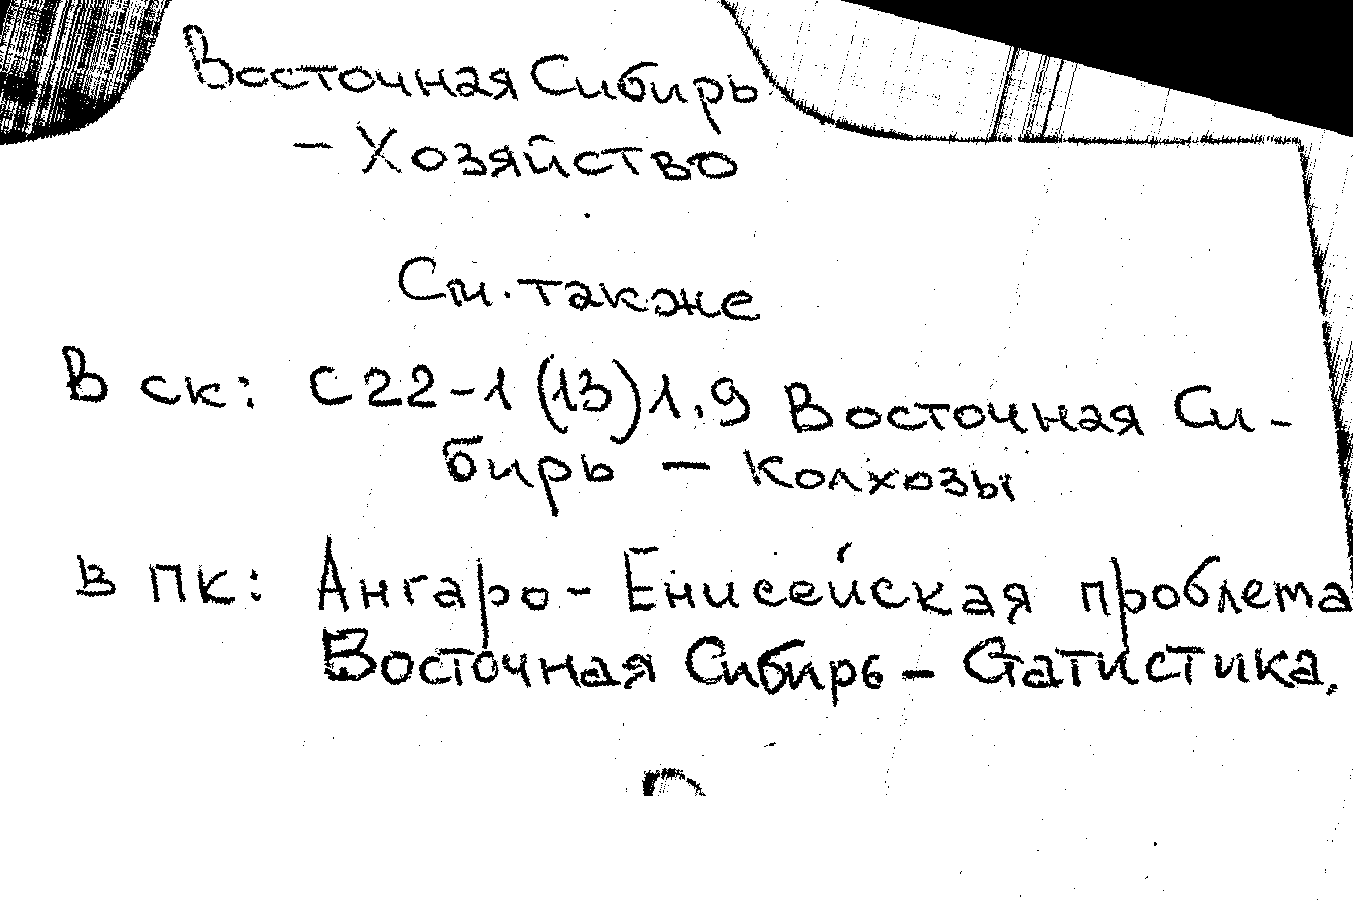 Восточная Сибирь
– Хозяйство
См. также
В ск: С22-1(13)1.9 Восточная Си-
бирь – Колхозы
в пк: Ангаро-Енисейская проблема
Восточная Сибирь – Статистика.